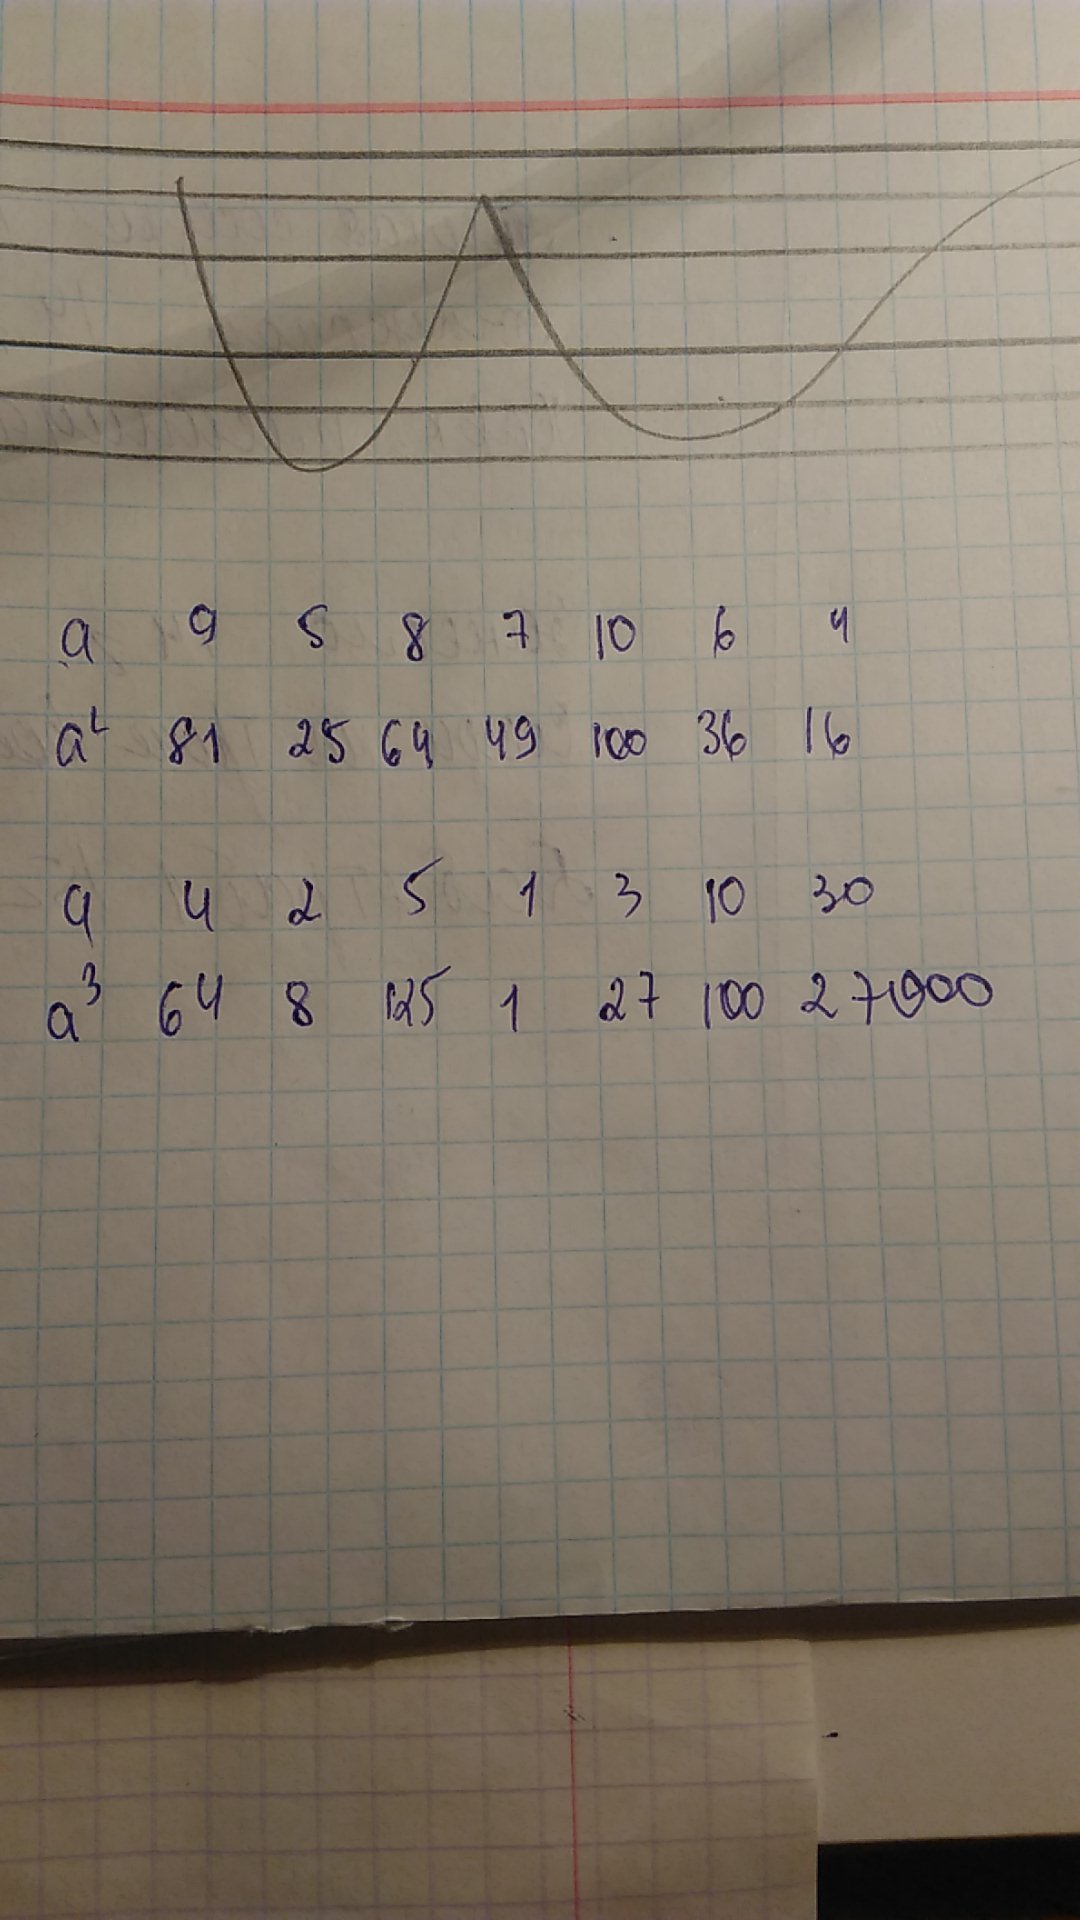 a 9 5 8 7 10 6 4
a² 81 25 64 49 100 36 16
a 4 2 5 1 3 10 30
a³ 64 8 125 1 27 100 27000